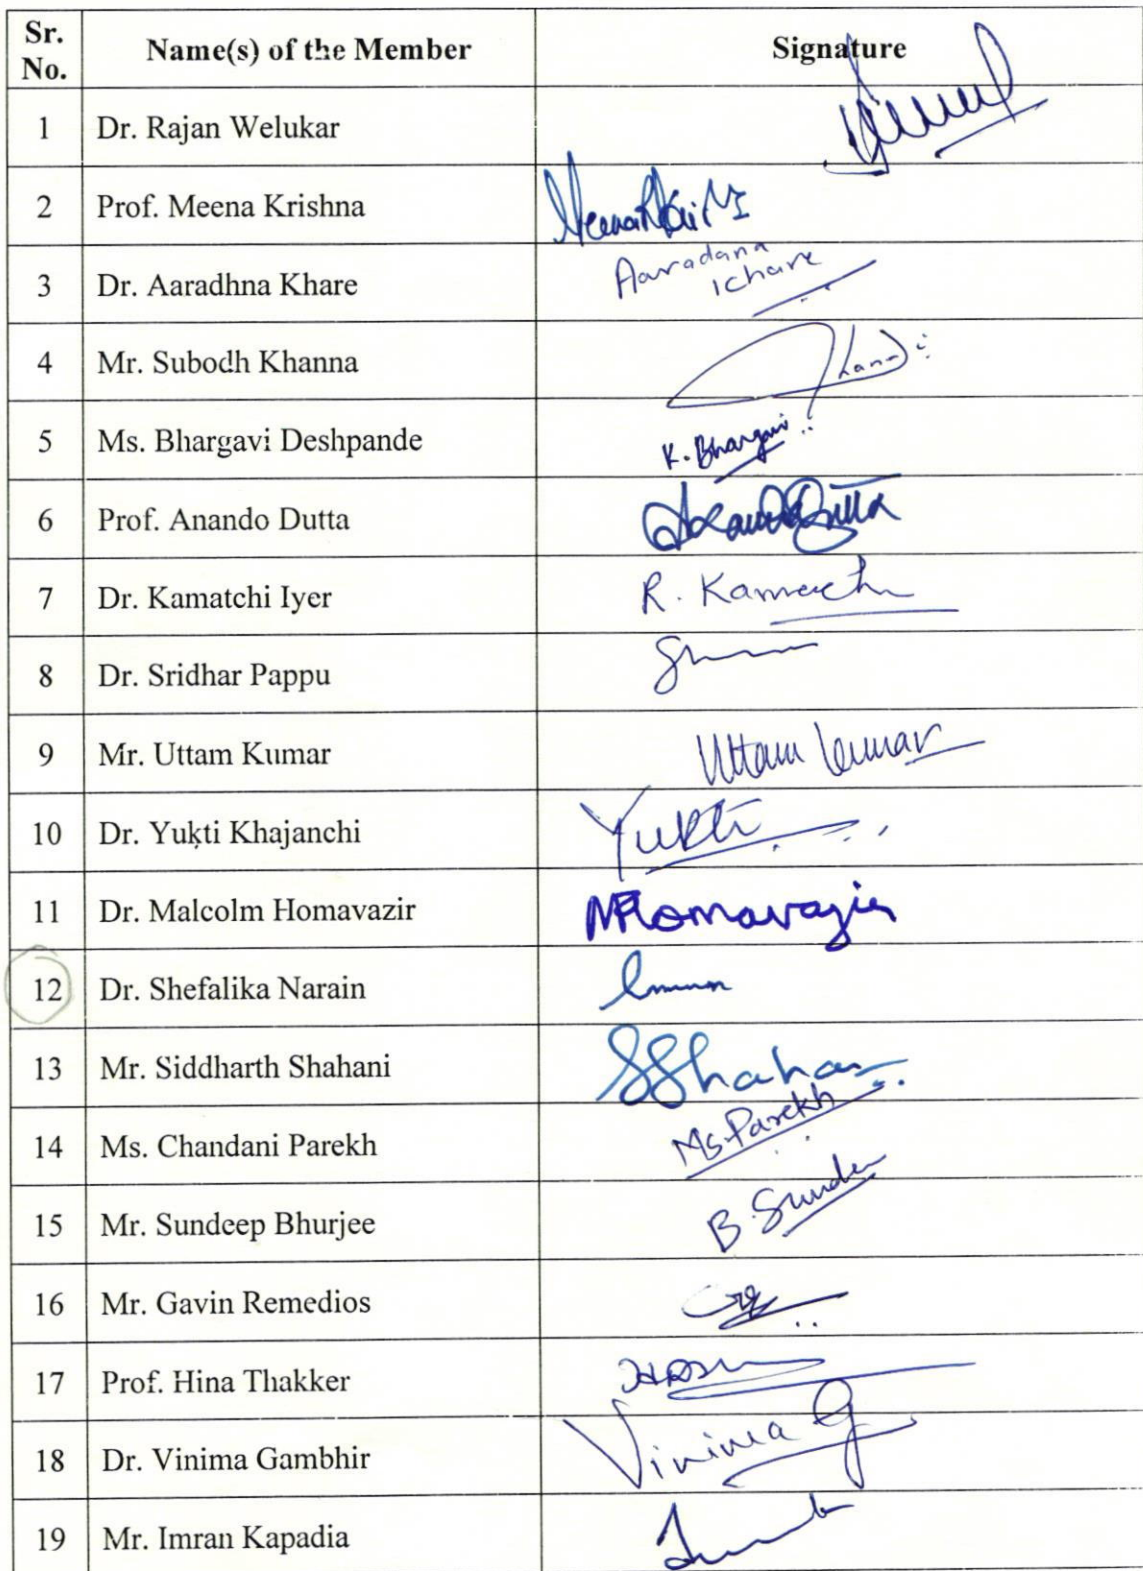 Sr. No. Name(s) of the Member Signature
1 Dr. Rajan Welukar
2 Prof. Meena Krishna
3 Dr. Aaradhna Khare Aaradana Khare
4 Mr. Subodh Khanna
5 Ms. Bhargavi Deshpande K. Bhargavi
6 Prof. Anando Dutta
7 Dr. Kamatchi Iyer R. Kamatchi
8 Dr. Sridhar Pappu
9 Mr. Uttam Kumar Uttam Kumar
10 Dr. Yukti Khajanchi Yukti
11 Dr. Malcolm Homavazir MHomavazir
12 Dr. Shefalika Narain
13 Mr. Siddharth Shahani
14 Ms. Chandani Parekh Ms. Parekh
15 Mr. Sundeep Bhurjee
16 Mr. Gavin Remedios
17 Prof. Hina Thakker
18 Dr. Vinima Gambhir Vinima G
19 Mr. Imran Kapadia